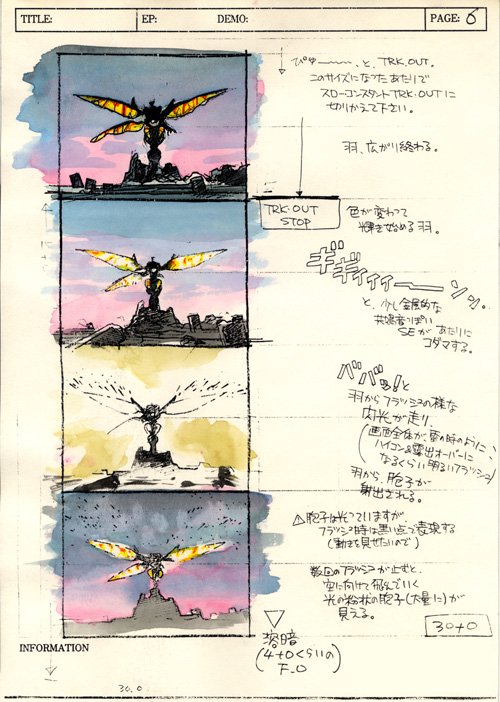 TITLE: EP: DEMO: PAGE: 6
ぴゅ〜〜、と、TRK.OUT。
このサイズになったあたりで
スローコンスタントTRK.OUTに
切りかえて下さい。
羽、広がり終わる。
TRK.OUT
STOP
色が変わって
輝き始める羽。
ギギィィィー―ンン。
と、少し金属的な
共鳴音っぽい
SEがあたりに
コダマする。
ババッ!と
羽からフラッシュの様な
閃光が走り、
(画面全体が雷の時のように、
ハイコン&露出オーバーに
なるくらい明るいフラッシュ)
羽から、胞子が
射出される。
△胞子は光っていますが
フラッシュ時は黒い点で表現する
(動きを見せたいので)
数回のフラッシュが止むと、
空に向けて飛んでいく
光の粉状の胞子(大量に)が
見える。
30+0
溶暗
(4+0くらいの
F.O
INFORMATION
30.0